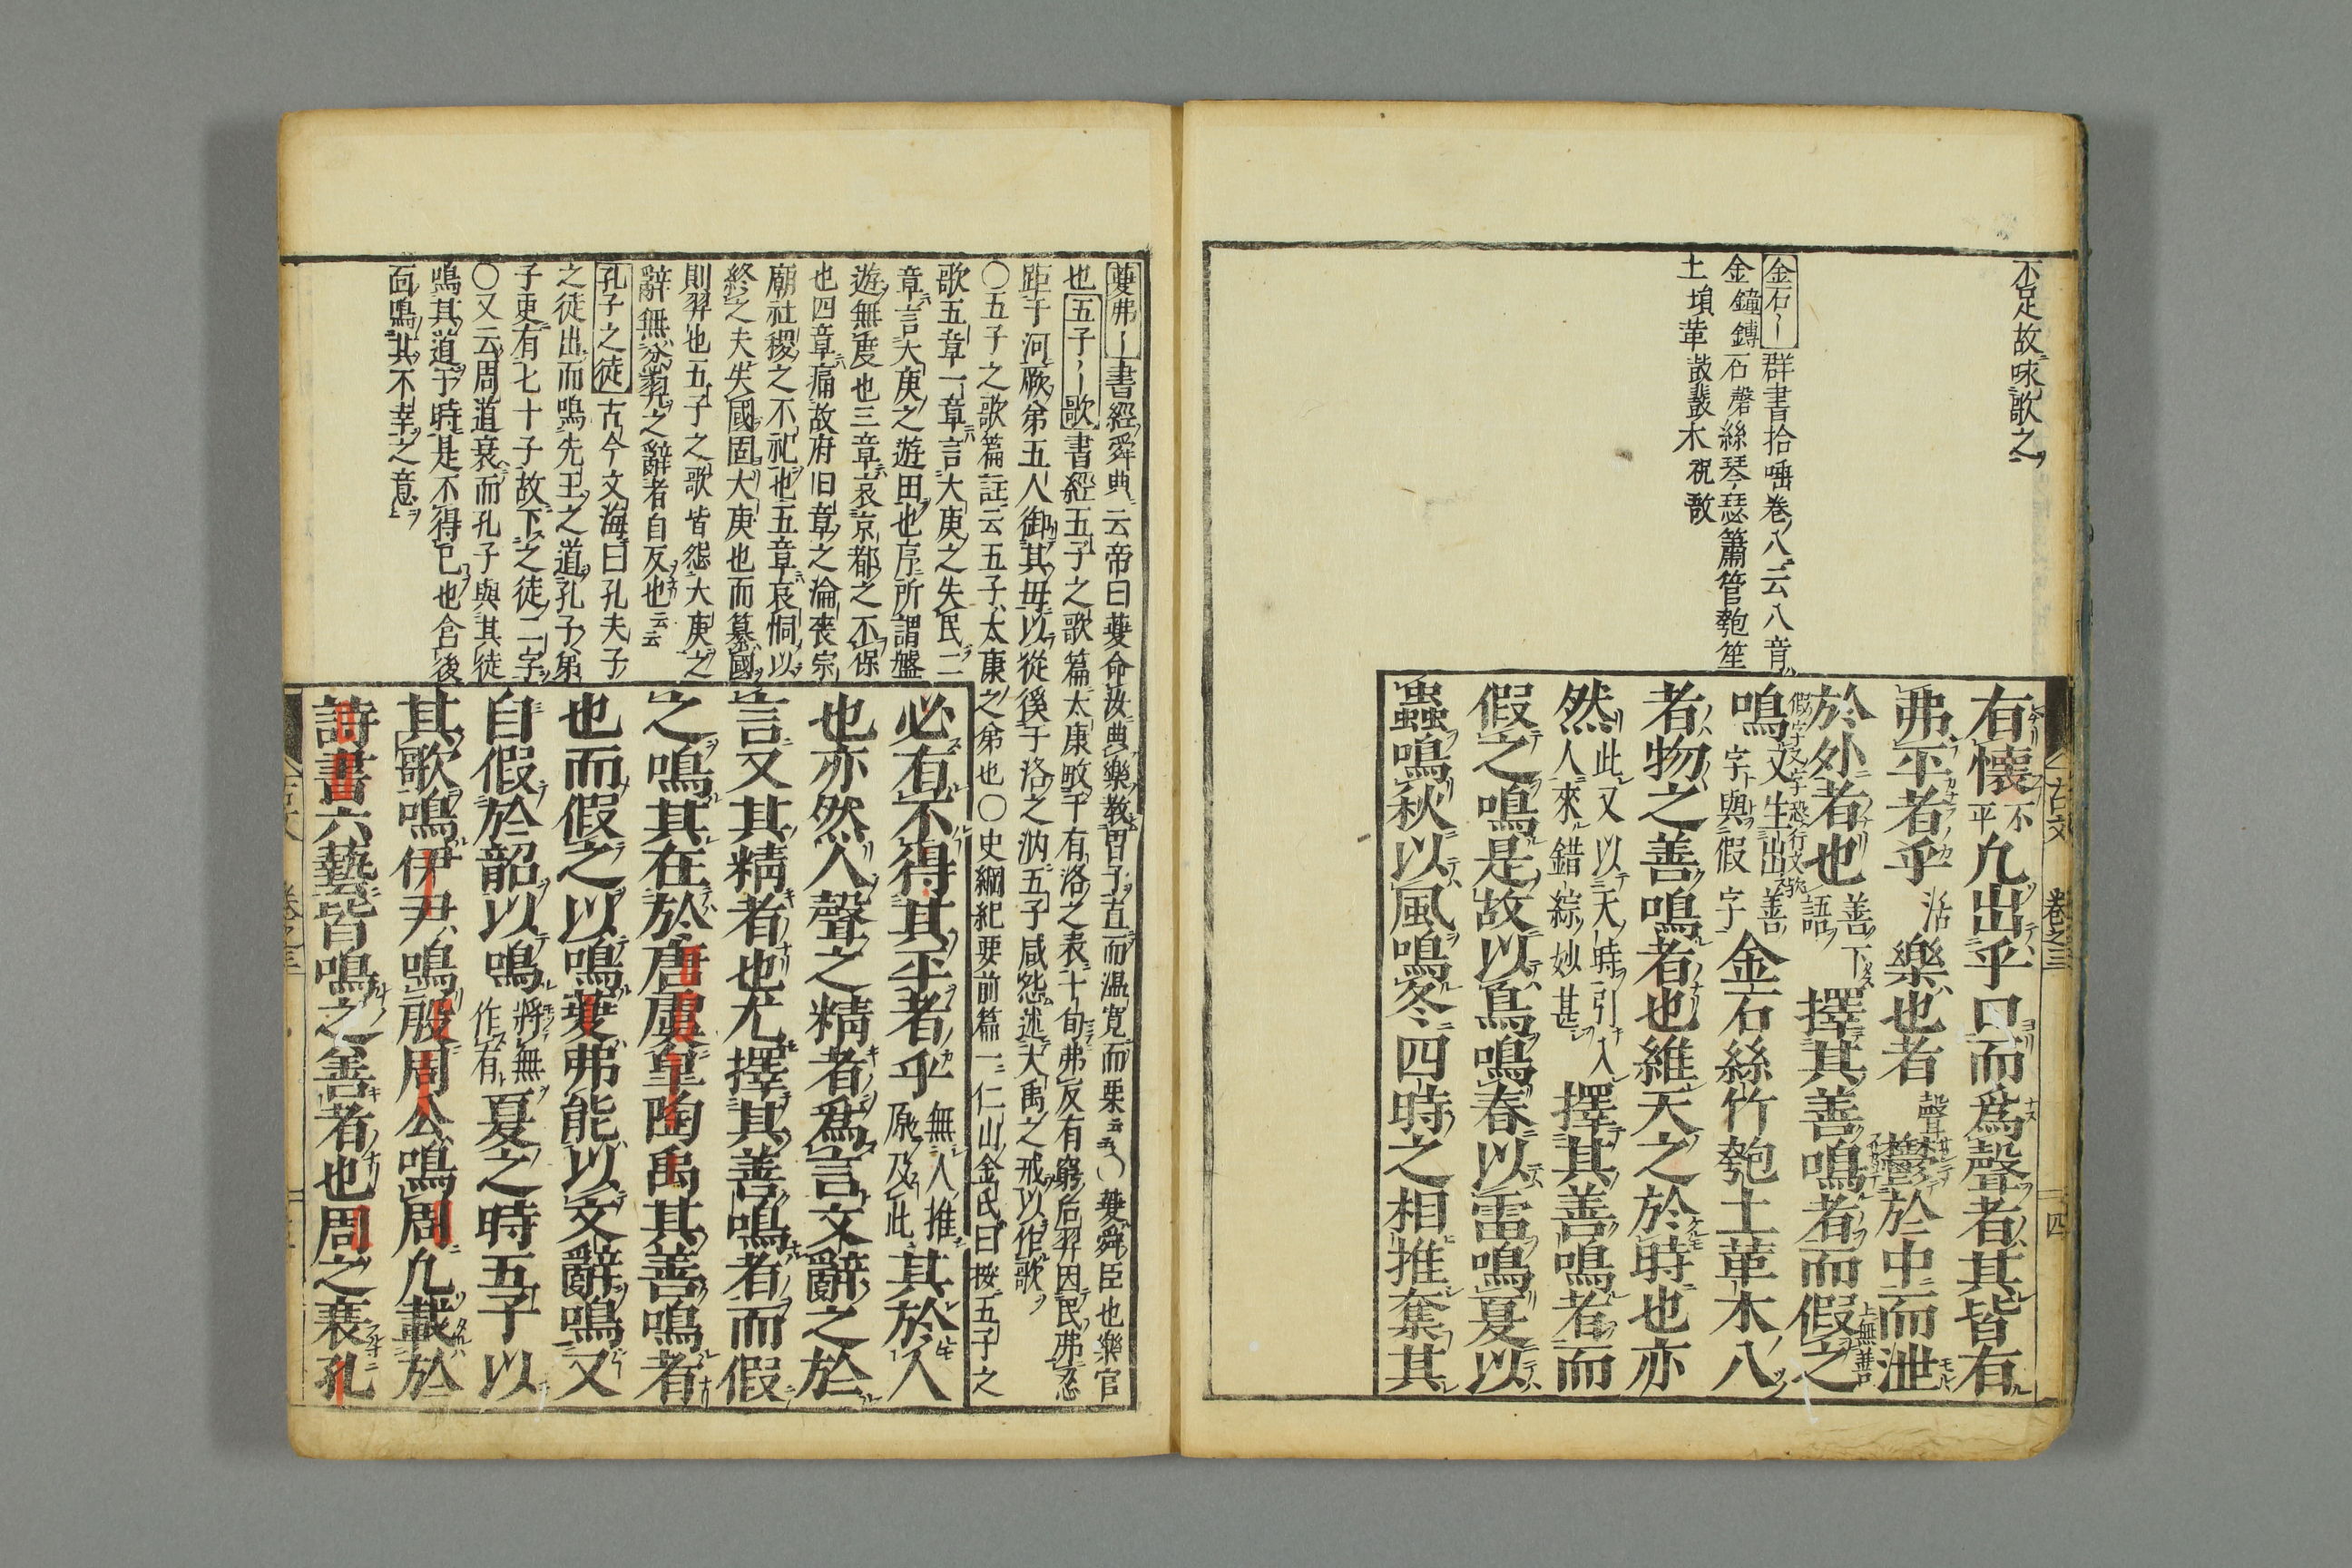 不足故咏歌之
金石〻群書拾唾卷八云八音
金鐘鏄石磬絲琴瑟簫管匏笙
土塤革鼓鼗木柷敔
有懷不平凡出乎口而爲聲者其皆有
弗平者乎活樂也者聲鬱於中而泄
於外者也善下語擇其善鳴者而假之
鳴又生出善字與假字金石絲竹匏土革木八
者物之善鳴者也維天之於時也亦
然此又以天時引入人來錯綜妙甚擇其善鳴者而
假之鳴是故以鳥鳴春以雷鳴夏以
蟲鳴秋以風鳴冬四時之相推奪其
古文
卷之三
四
夔弗〻書經舜典云帝曰夔命汝典樂教胄子直而温寬而栗云云○夔舜臣也樂官
也五子〻歌書經五子之歌篇太康畋于有洛之表十旬弗反有窮后羿因民弗忍
距于河厥弟五人御其母以從徯于洛之汭五子咸怨述大禹之戒以作歌
○五子之歌篇註云五子太康之弟也○史綱紀要前篇一仁山金氏曰按五子之
歌五章一章言大庚之失民二
章言大庚之遊田也序所謂盤
遊無度也三章哀京都之不保
也四章痛故府旧章之淪喪宗
廟社稷之不祀也五章哀恫以
終之夫失國固大庚也而簒國
則羿也五子之歌皆怨大庚之
辭無忿羿之辭者自反也云云
孔子之徒古今文海曰孔夫子
之徒出而鳴先王之道孔子弟
子更有七十子故下之徒二字
○又云周道衰而孔子與其徒
鳴其道于時是不得已也含後
面鳴其不幸之意
必有不得其平者乎無人推原及此其於人
也亦然人聲之精者爲言文辭之於
言又其精者也尤擇其善鳴者而假
之鳴其在於唐虞皐陶禹其善鳴者
也而假之以鳴夔弗能以文辭鳴又
自假於韶以鳴將無作有夏之時五子以
其歌鳴伊尹鳴殷周公鳴周凡載於
詩書六藝皆鳴之善者也周之衰孔